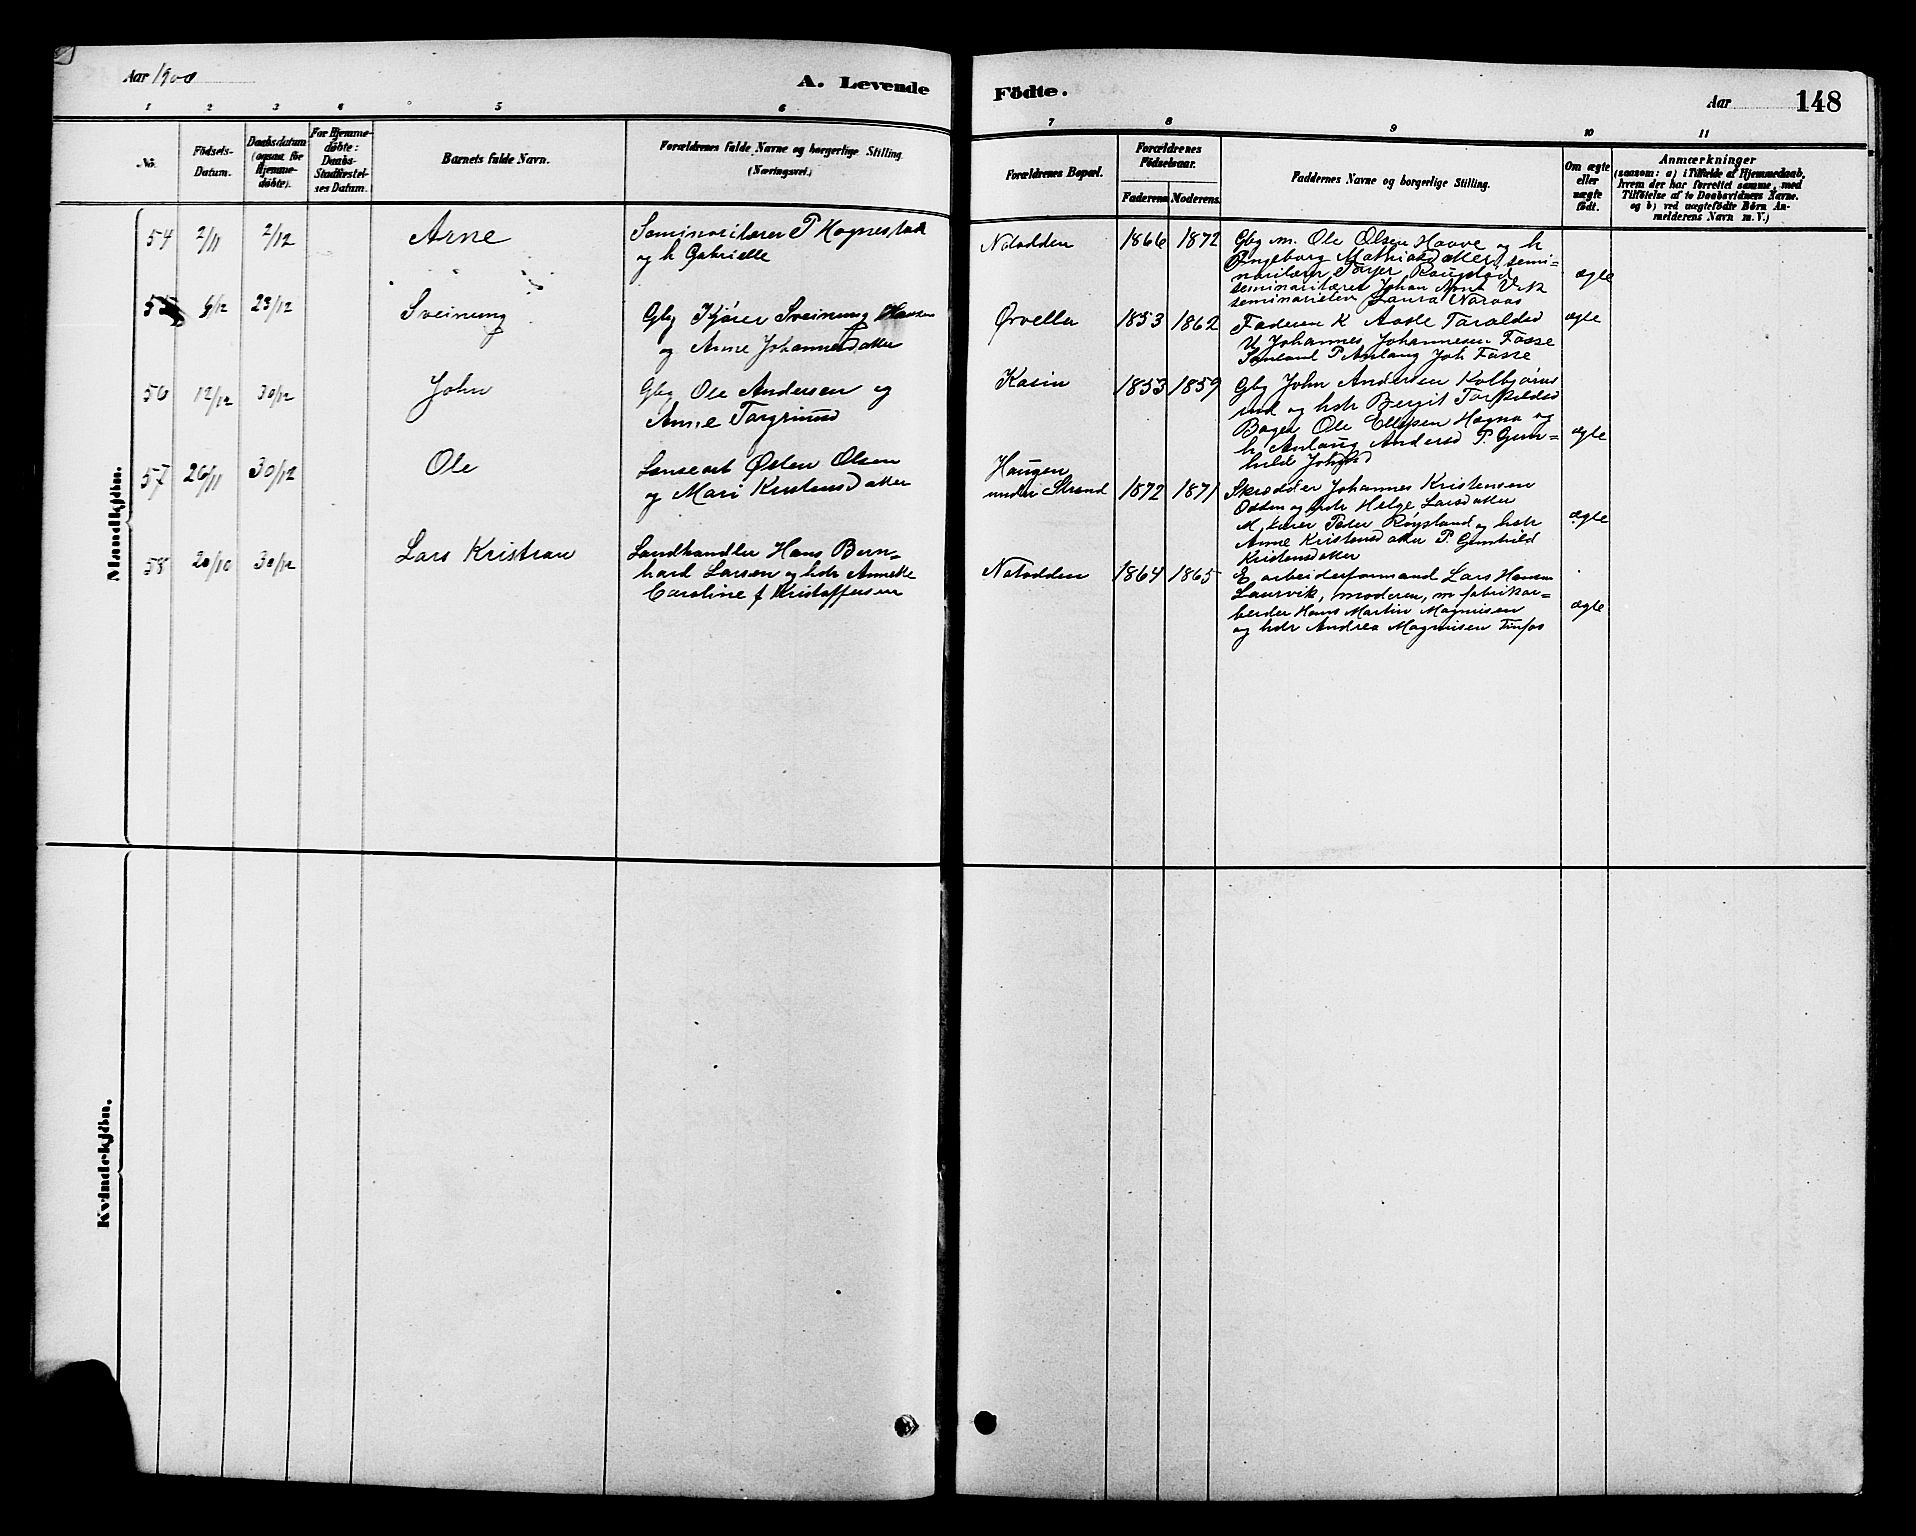 Aar 1900
A. Levende
Födte.
Aar
148
1 2 3 4 5 6
7 8 9 10 11
No.
Födsels-
Datum.
Daabsdatum
(ogsaa for
Hjemme-
døbte).
For Hjemme-
døbte:
Daabs-
Stadfæstel-
ses Datum.
Barnets fulde Navn.
Forældrenes fulde Navne og borgerlige Stilling
(Næringsvei.)
Forældrenes Bopæl.
Forældrenes
Födselsaar.
Faderens
Moderens.
Faddernes Navne og borgerlige Stilling.
Om ægte
eller
uægte
født.
Anmærkninger
(saasom: a) i Tilfælde af Hjemmedaab,
hvem der har forrettet samme, med
Tilføielse af to Daabsvidners Navne.
og b) ved uægtefødte Børn An-
melderens Navn m. V.)
Mandkjön.
54 2/11 2/12 Arne
Seminarilærer P Hognestad
og h Gabrielle
Notodden 1866 1872
Gbg m. Ole Olsen Haave og h
Ingeborg Mathiasdatter, semi-
narilærer Torjer
seminarilærer Johan
Laura
ægte
55 6/12 23/12 Sveinung
Gbg Kjører Sveinung Hansen
og Anne Johannesdatter
Ørvella 1853 1862
Faderen K Aasle Taraldsd
U Johannes Johannesen Fosse
P Aslaug Joh Fosse
ægte
56 12/12 30/12 John
Gbg Ole Andersen og
Anne Torgrimsd
Kasin 1853 1859
Gbg John Andersen Kolbjørns
rud og hdr Bergit Torkildsd
Bager Ole Ellefsen Høgna og
h Aslaug Andersd P. Gun-
hild Johnsd
ægte
57 26/11 30/12 Ole
Lænsearb Østen Olsen
og Mari Kristensdatter
Haugen
under Strand 1872 1871
Skrædder Johannes Kristensen
og hdr Helge Larsdatter
Peter Røysland og hdr
Anne Kristensdatter P. Gunhild
Kristensdatter
ægte
58 20/10 30/12 Lars Kristian
Landhandler Hans Bern-
hard Larsen og hdr Annette
Caroline f Kristoffersen
Notodden 1864 1865
E arbeiderformand Lars Hansen
Laurvik, moderen, m fabrikar-
beider Hans Martin Magnusen
og hdr Andrea Magnusen Tinfos
ægte
Kvindekjön.